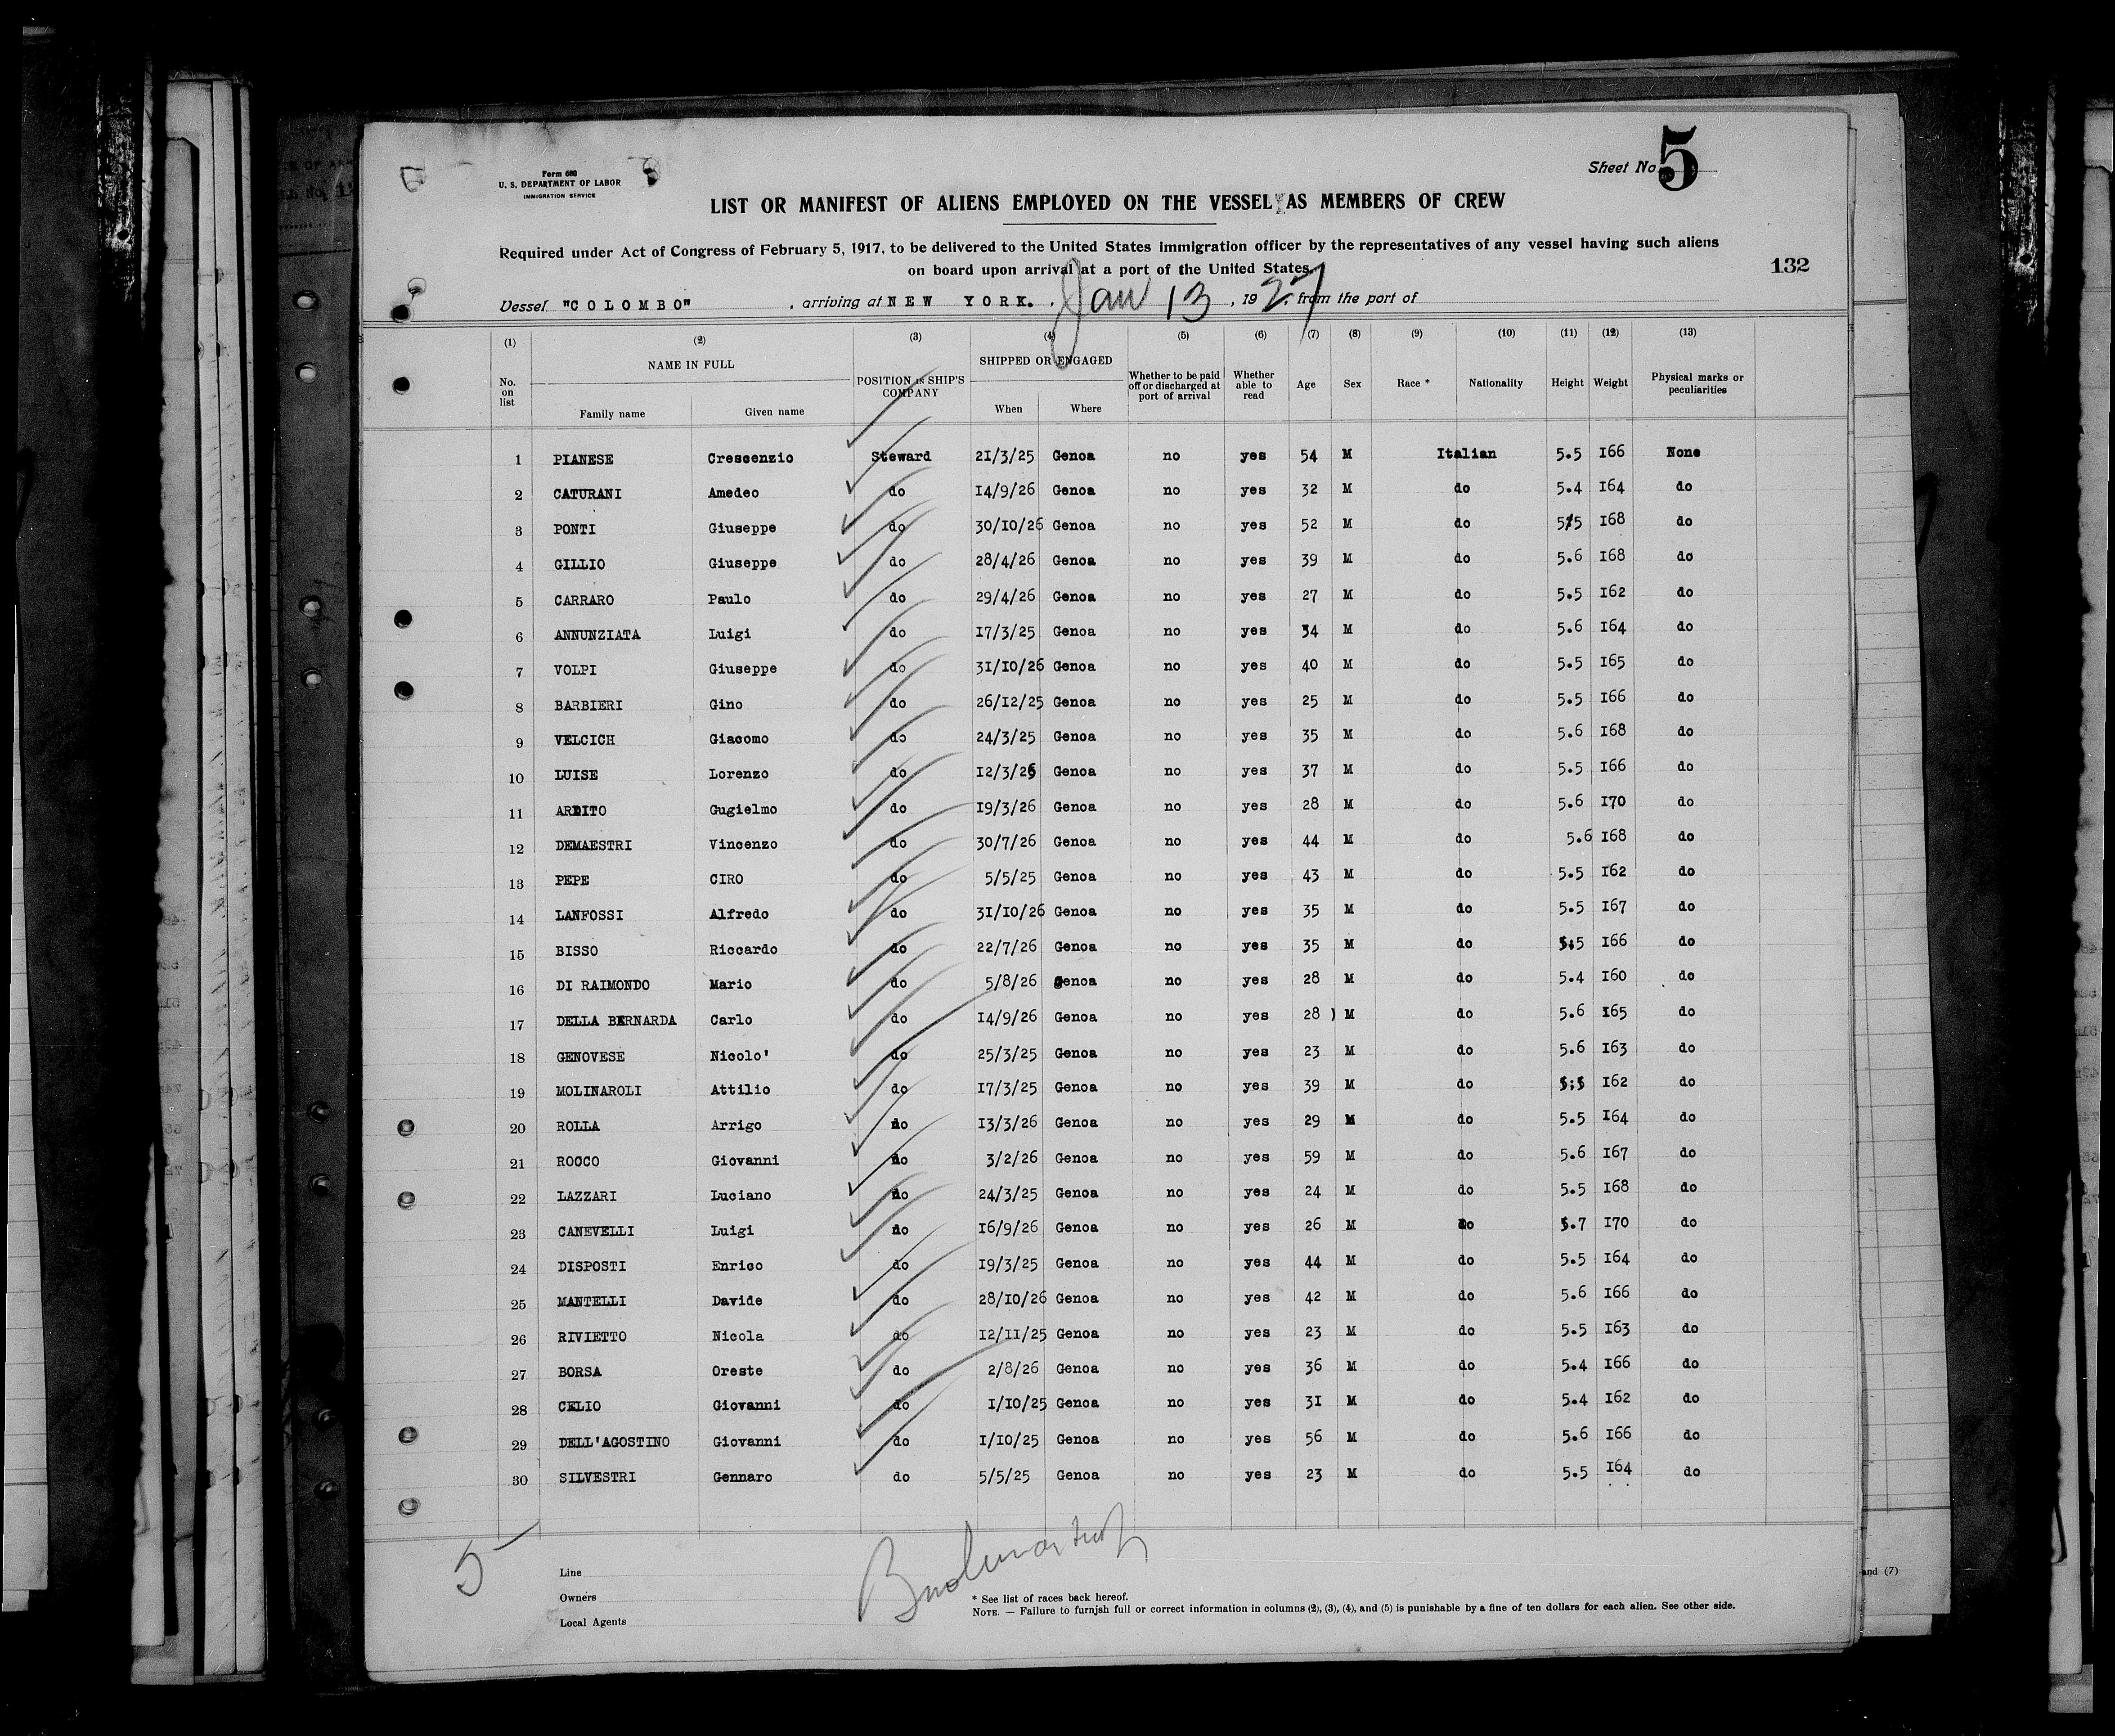 Form 680
U. S. DEPARTMENT OF LABOR
IMMIGRATION SERVICE
Sheet No 5
LIST OR MANIFEST OF ALIENS EMPLOYED ON THE VESSEL AS MEMBERS OF CREW
Required under Act of Congress of February 5, 1917, to be delivered to the United States immigration officer by the representatives of any vessel having such aliens
on board upon arrival at a port of the United States
132
Vessel "COLOMBO" , arriving at NEW YORK. , Jan 13 , 1927, from the port of
(1) (2) (3) (4) (5) (6) (7) (8) (9) (10) (11) (12) (13)
No. on list NAME IN FULL Family name Given name POSITION IN SHIP'S COMPANY SHIPPED OR ENGAGED When Where Whether to be paid off or discharged at port of arrival Whether able to read Age Sex Race * Nationality Height Weight Physical marks or peculiarities
1 PIANESE Crescenzio Steward 21/3/25 Genoa no yes 54 M Italian 5.5 166 None
2 CATURANI Amedeo do 14/9/26 Genoa no yes 32 M do 5.4 164 do
3 PONTI Giuseppe do 30/10/26 Genoa no yes 52 M do 5.5 168 do
4 GILLIO Giuseppe do 28/4/26 Genoa no yes 39 M do 5.6 168 do
5 CARRARO Paulo do 29/4/26 Genoa no yes 27 M do 5.5 162 do
6 ANNUNZIATA Luigi do 17/3/25 Genoa no yes 34 M do 5.6 164 do
7 VOLPI Giuseppe do 31/10/26 Genoa no yes 40 M do 5.5 165 do
8 BARBIERI Gino do 26/12/25 Genoa no yes 25 M do 5.5 166 do
9 VELCICH Giacomo do 24/3/25 Genoa no yes 35 M do 5.6 168 do
10 LUISE Lorenzo do Genoa no yes 37 M do 5.5 166 do
11 ARDITO Gugielmo do 19/3/26 Genoa no yes 28 M do 5.6 170 do
12 DEMAESTRI Vincenzo do 30/7/26 Genoa no yes 44 M do 5.6 168 do
13 PEPE CIRO do 5/5/25 Genoa no yes 43 M do 5.5 162 do
14 LANFOSSI Alfredo do 31/10/26 Genoa no yes 35 M do 5.5 167 do
15 BISSO Riccardo do 22/7/26 Genoa no yes 35 M do 5;5 166 do
16 DI RAIMONDO Mario do 5/8/26 Genoa no yes 28 M do 5.4 160 do
17 DELLA BERNARDA Carlo do 14/9/26 Genoa no yes 28 ) M do 5.6 165 do
18 GENOVESE Nicolo' do 25/3/25 Genoa no yes 23 M do 5.6 163 do
19 MOLINAROLI Attilio do 17/3/25 Genoa no yes 39 M do 5;5 162 do
20 ROLLA Arrigo do 13/3/26 Genoa no yes 29 M do 5.5 164 do
21 ROCCO Giovanni do 3/2/26 Genoa no yes 59 M do 5.6 167 do
22 LAZZARI Luciano do 24/3/25 Genoa no yes 24 M do 5.5 168 do
23 CANEVELLI Luigi do 16/9/26 Genoa no yes 26 M do 5.7 170 do
24 DISPOSTI Enrico do 19/3/25 Genoa no yes 44 M do 5.5 164 do
25 MANTELLI Davide do 28/10/26 Genoa no yes 42 M do 5.6 166 do
26 RIVIETTO Nicola do 12/11/25 Genoa no yes 23 M do 5.5 163 do
27 BORSA Oreste do 2/8/26 Genoa no yes 36 M do 5.4 166 do
28 CELIO Giovanni do 1/10/25 Genoa no yes 31 M do 5.4 162 do
29 DELL'AGOSTINO Giovanni do 1/10/25 Genoa no yes 56 M do 5.6 166 do
30 SILVESTRI Gennaro do 5/5/25 Genoa no yes 23 M do 5.5 164 do
5
Line
Owners
Local Agents
* See list of races back hereof.
NOTE. — Failure to furnish full or correct information in columns (2), (3), (4), and (5) is punishable by a fine of ten dollars for each alien. See other side.
and (7)